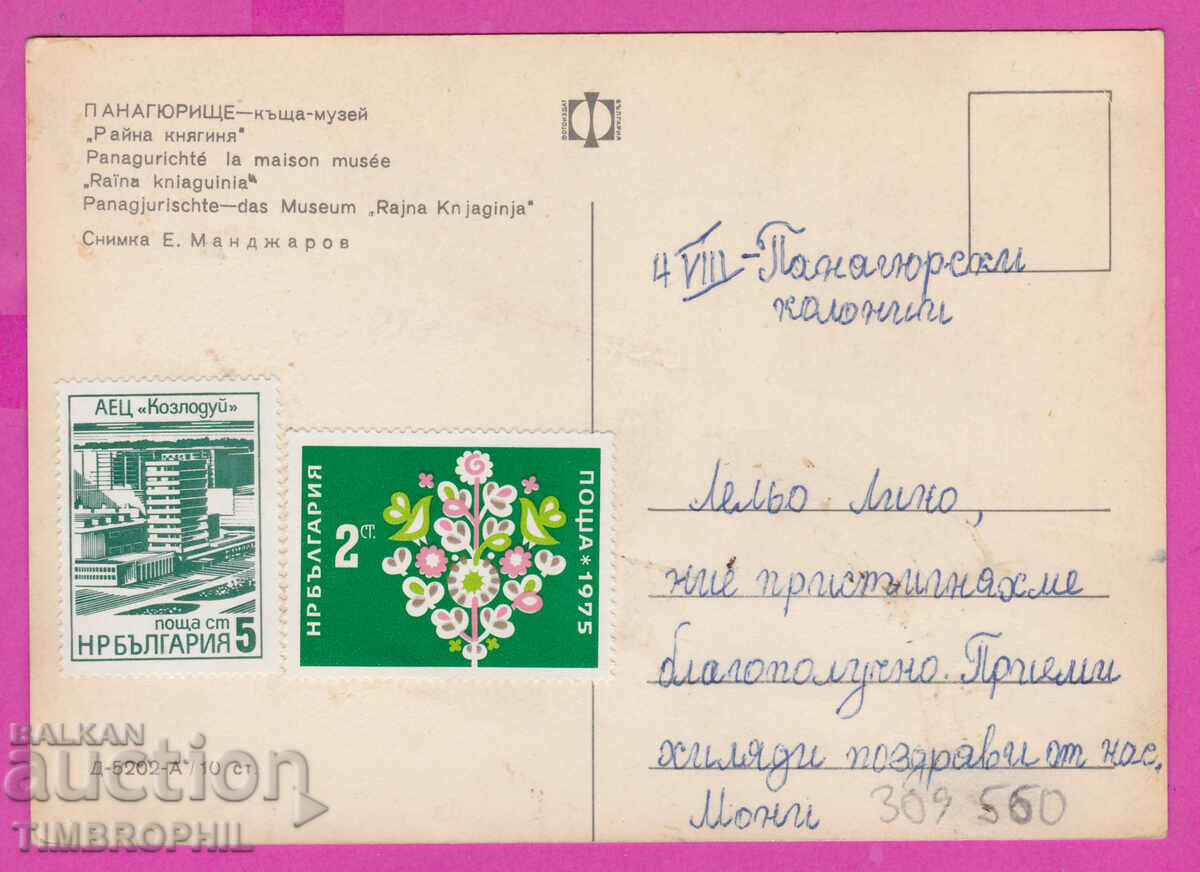 ПАНАГЮРИЩЕ—къща-музей
„Райна княгиня"
Panagurichté la maison musée
„Raïna kniaguinia"
Panagjurischte—das Museum „Rajna Knjaginja"
Снимка Е. Манджаров
ФОТОИЗДАТ
БЪЛГАРИЯ
4 VIII - Панагюрски
колонии
АЕЦ «Козлодуй»
поща ст
НРБЪЛГАРИЯ 5
НРБЪЛГАРИЯ
2 СТ.
ПОЩА * 1975
Лельо Лино,
ние пристигняхме
благополучно. Приеми
хиляди поздрави от нас.
Мони
309 560
Д-5202-А / 10 ст.
BALKAN
auction
TIMBROPHIL